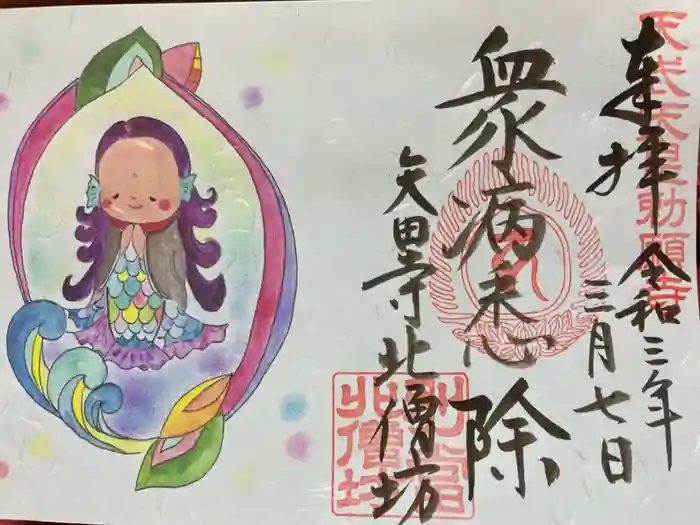 天武天皇勅願寺
奉拝 令和三年
三月七日
衆病悉除
矢田寺北僧坊
北僧坊